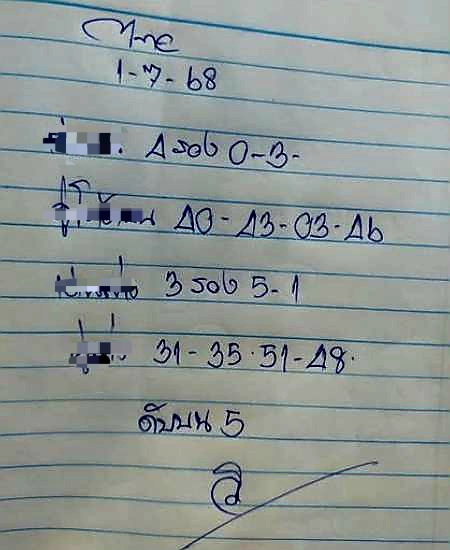 ไทย
1-7-68
4 รอง 0-3-
40-43-03-46
3 รอง 5-1
31-35.51-48.
ดับบน 5